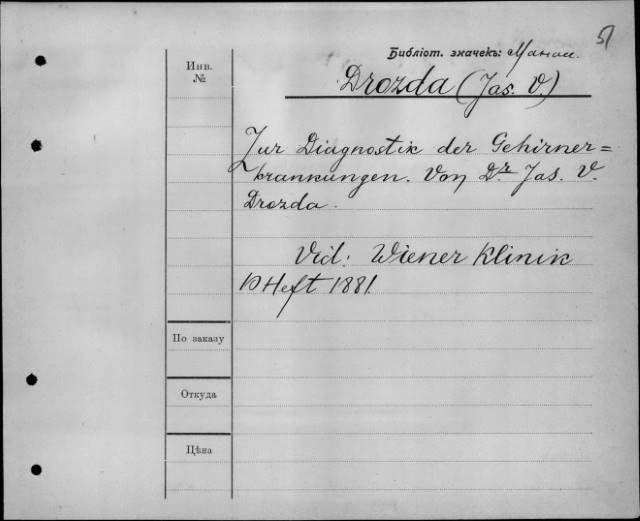 51
Библіот. значекъ: Манас.
Инв. №
Drozda (Jas. V.)
Zur Diagnostik der Gehirner=
krankungen. Von Dr. Jas. V.
Drozda.
Vid: Wiener Klinik
10 Heft 1881
По заказу
Откуда
Цѣна